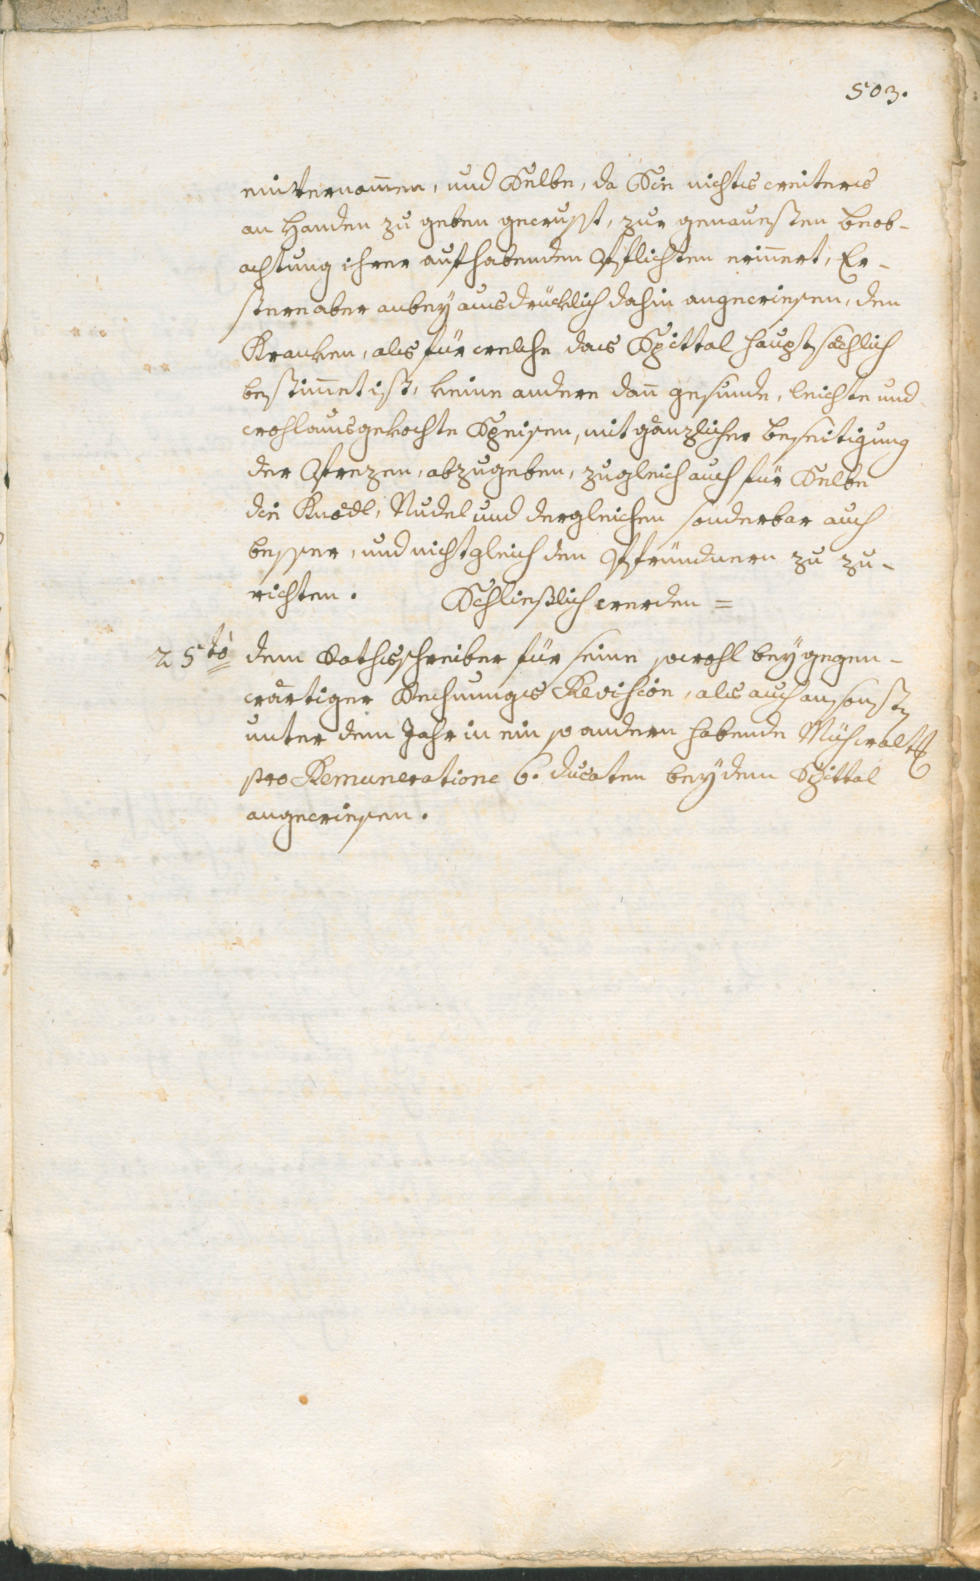 503.
einvernom̄en, und Selbe, da Sie nichts weiters
an Handen zu geben gewusst, zur genauesten beob-
achtung ihrer aufhabenden Pflichten erin̄ert, Er-
stere aber anbey ausdrücklich dahin angewiesen, den
Kranken, als für welche das Spittal hauptsächlich
bestim̄et ist, keine andere dan̄ gesunde, leichte und
wohlausgekochte Speisen, mit gänzlicher beseitigung
der Prezen, abzugeben, zugleich auch für Selbe
die Knödl, Nudel und dergleichen sonderbar auch
besser, und nicht gleich den Pfründnern zu zu-
richten. Schließlich werden =
25to dem Rathsschreiber für seine sowohl bey gegen-
wärtiger Rechnungs Revision, als auch ansonstn
unter dem Jahr in ein so andern habende Mühwaltg
pro Remuneratione 6. ducaten bey dem Spittal
angewiesen.